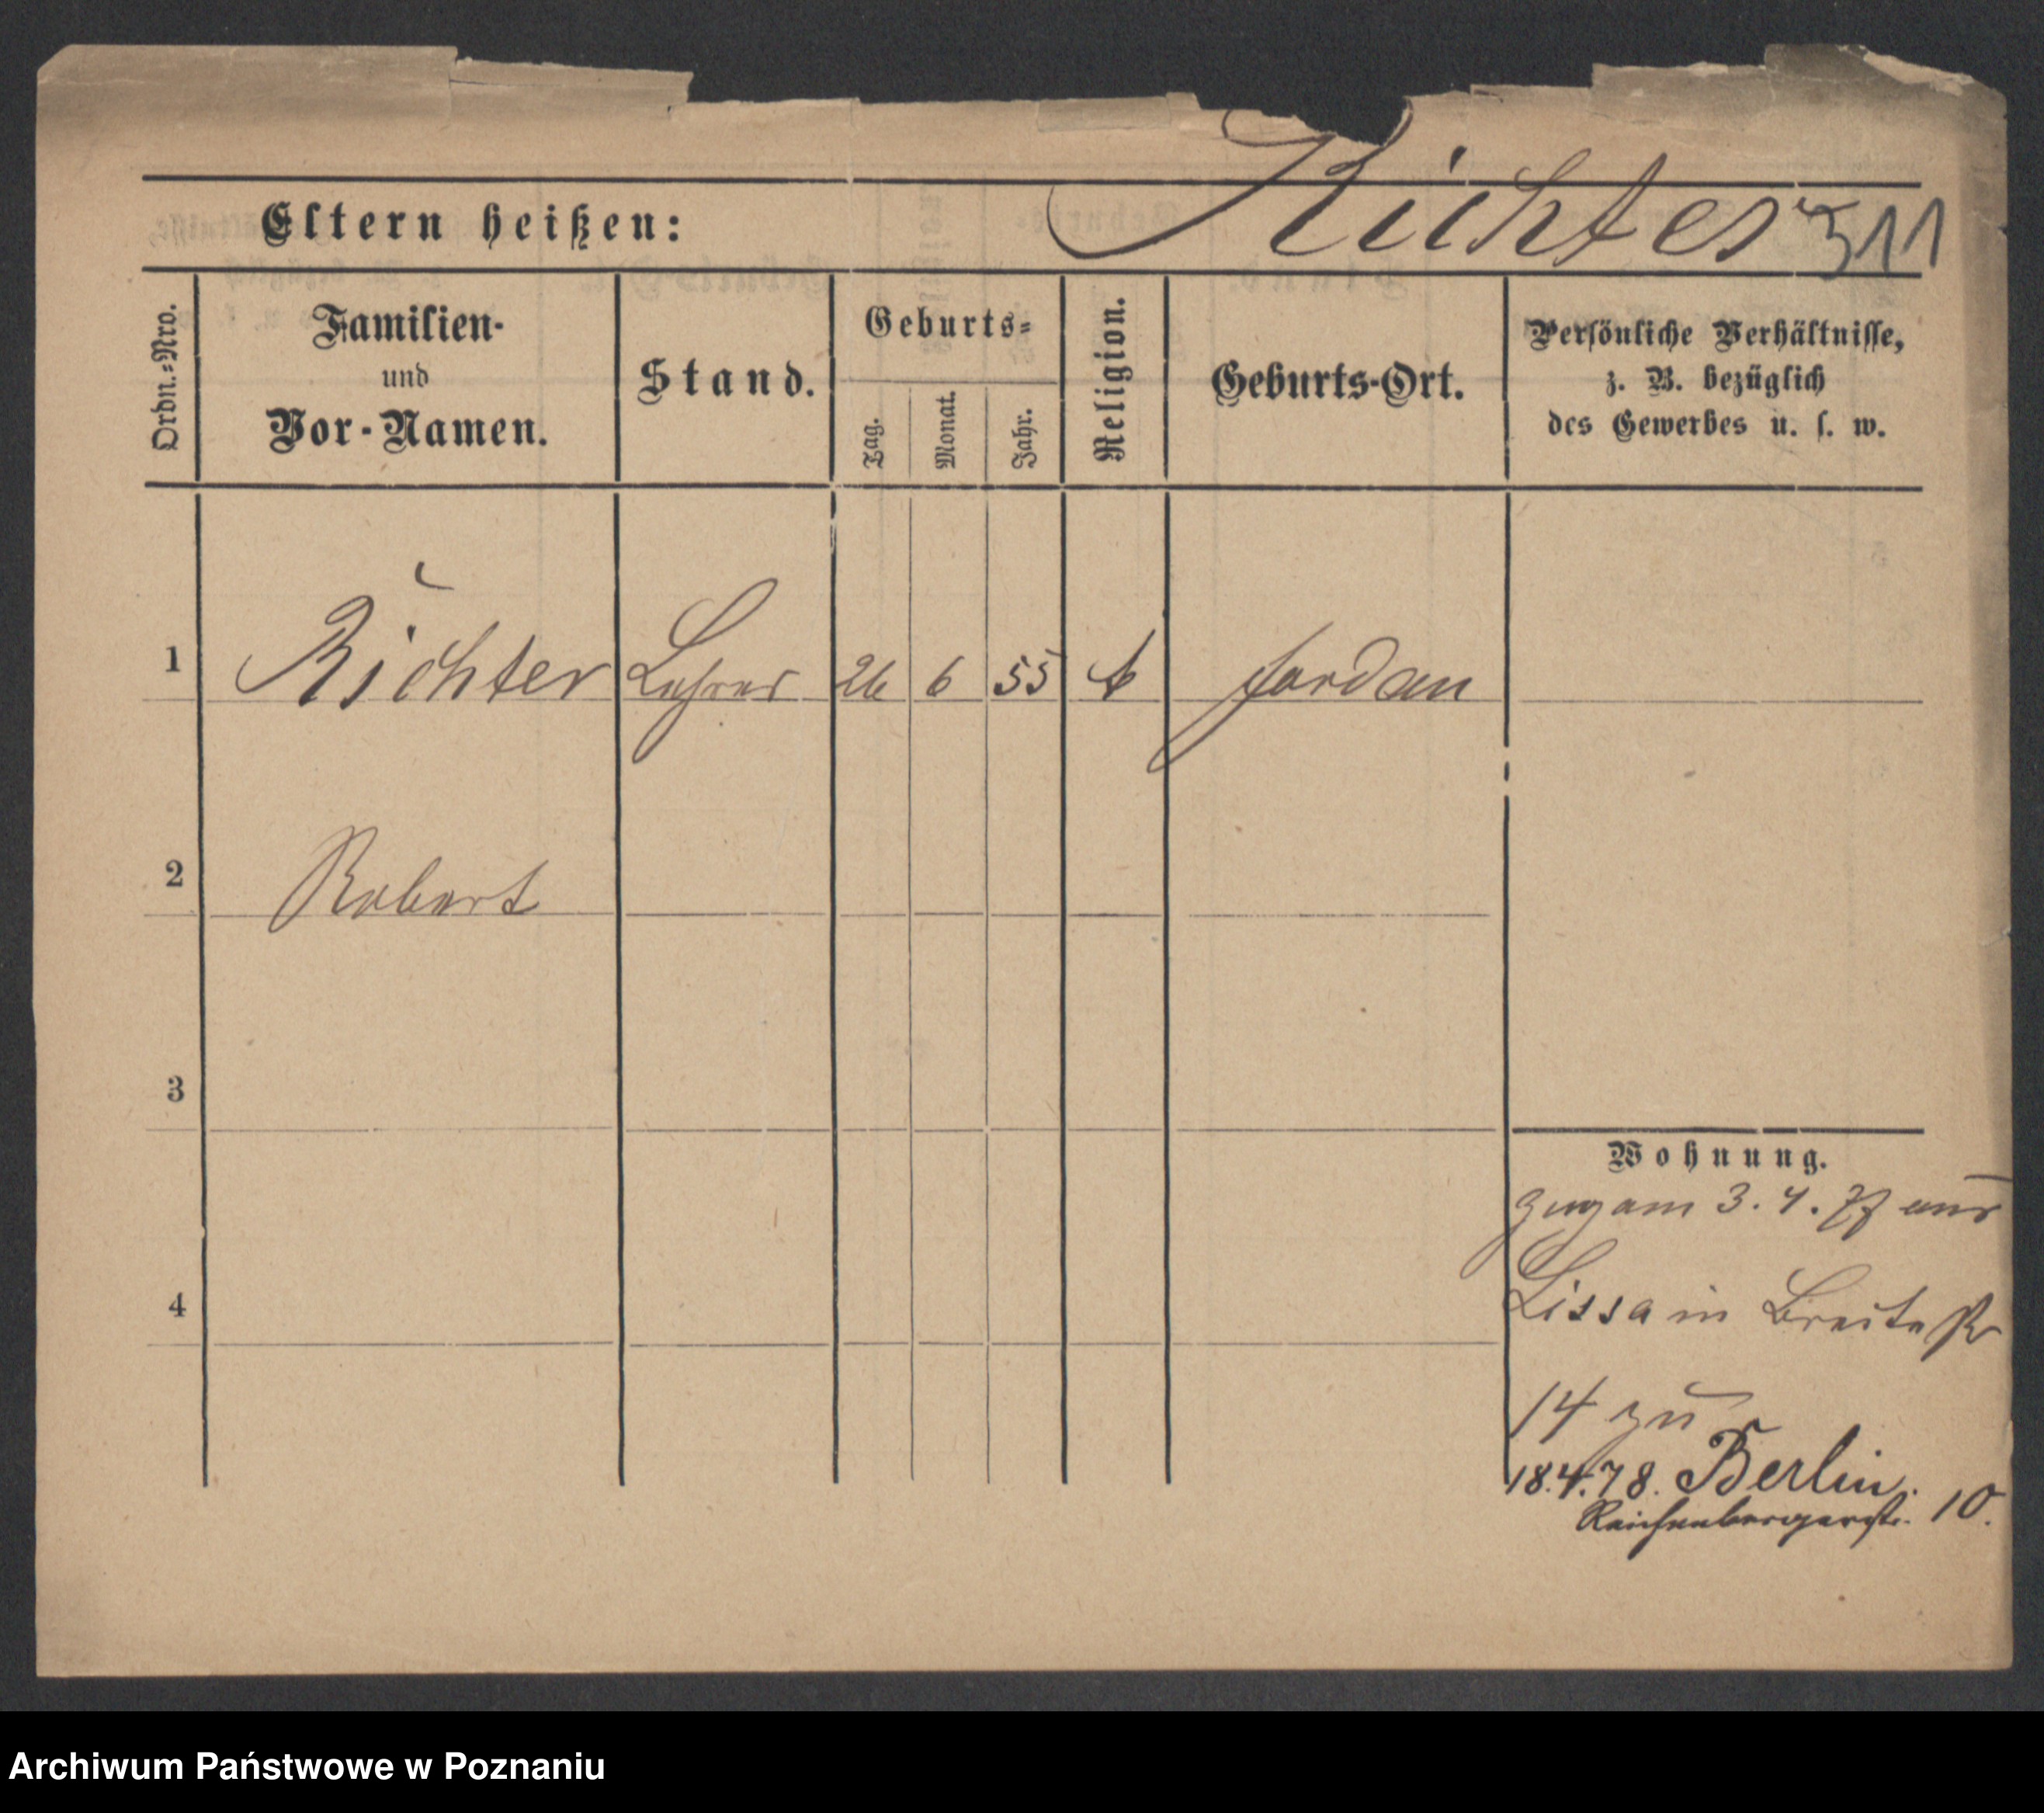 Richter
311
Eltern heißen:
Ordn.-Nro.
Familien-
und
Vor-Namen.
Stand.
Geburts-
Tag.
Monat.
Jahr.
Religion.
Geburts-Ort.
Persönliche Verhältnisse,
z. B. bezüglich
des Gewerbes u. s. w.
1 Richter Lehrer 26 6 55 Jordan
2 Robert
3
4
Wohnung.
zugam 3. 4. 77 aus
Lissa in Breite Str
14 zu
18.4.78. Berlin.
Reichenbergerstr. 10.
Archiwum Państwowe w Poznaniu